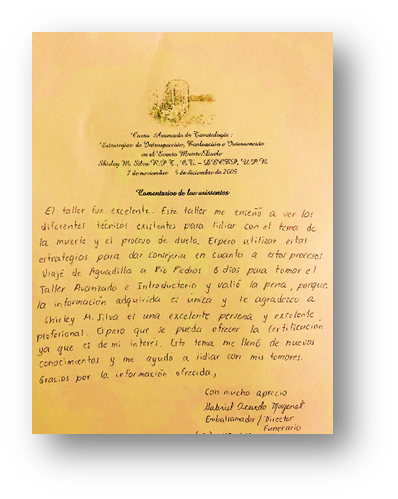 Curso Avanzado de Tanatología:
Estrategias de Introspección, Evaluación e Intervención
en el Evento Muerte/Duelo
Shirley M. Silva R.P.T., C.T. - DECTSP, U.P.R.
7 de noviembre - 5 de diciembre de 2005
Comentarios de los asistentes
El taller fue excelente. Este taller me enseñó a ver las
diferentes técnicas existentes para lidiar con el tema de
la muerte y el proceso de duelo. Espero utilizar estas
estrategias para dar consejería en cuanto a estos procesos
Viajé de Aguadilla a Río Piedras 6 días para tomar el
Taller Avanzado e Introductorio y valió la pena, porque
la información adquirida es única y le agradezco a
Shirley M. Silva es una excelente persona y excelente
profesional. Espero que se pueda ofrecer la certificación
ya que es de mi interés. Este tema me llenó de nuevos
conocimientos y me ayudo a lidiar con mis temores.
Gracias por la información ofrecida,
Con mucho aprecio
Gabriel Acevedo
Embalsamador / Director
Funerario